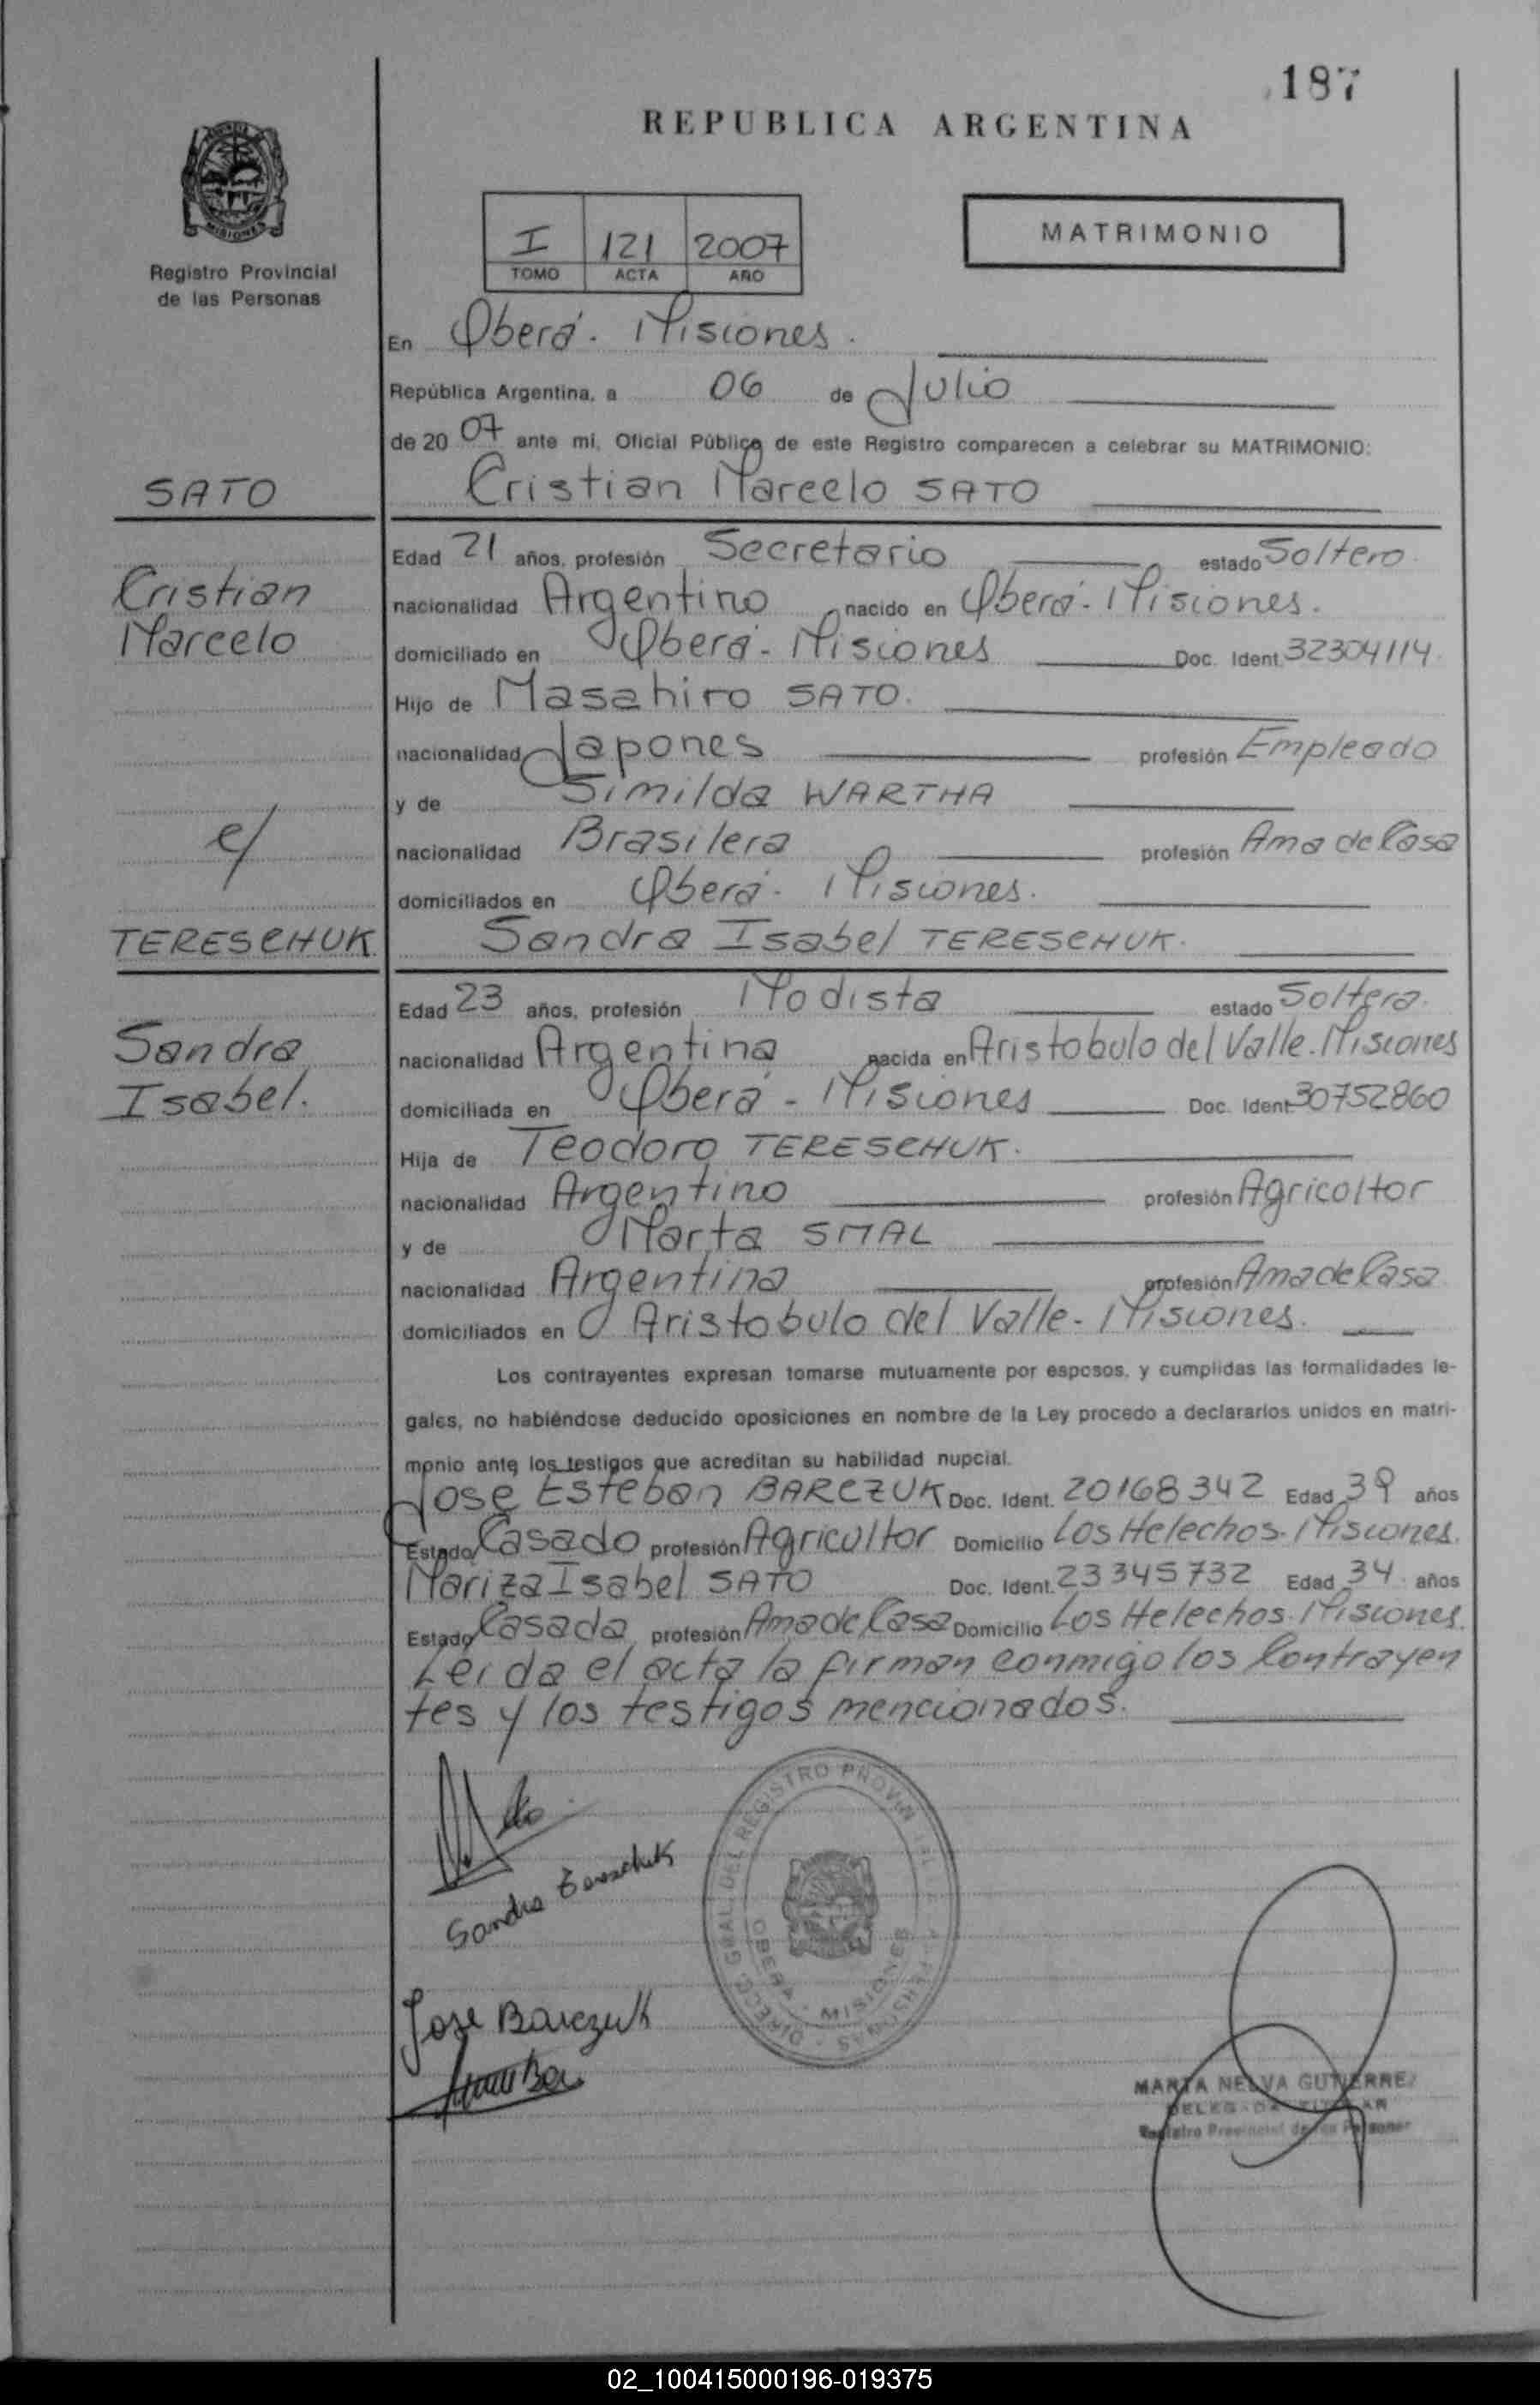 187
REPUBLICA ARGENTINA
MISIONES
Registro Provincial
de las Personas
I 121 2007
TOMO ACTA AÑO
MATRIMONIO
En Oberá - Misiones.
República Argentina, a 06 de Julio
de 20 07 ante mí, Oficial Público de este Registro comparecen a celebrar su MATRIMONIO:
SATO
Cristian Marcelo SATO
Edad 21 años, profesión Secretario estado Soltero.
Cristian
nacionalidad Argentino nacido en Oberá - Misiones.
Marcelo
domiciliado en Oberá - Misiones Doc. Ident. 32304114.
Hijo de Masahiro SATO.
nacionalidad Japones profesión Empleado
y de Similda WARTHA
c/
nacionalidad Brasilera profesión Ama de Casa
domiciliados en Oberá - Misiones.
TERESCHUK
Sandra Isabel TERESCHUK.
Edad 23 años, profesión Modista estado Soltera.
Sandra
nacionalidad Argentina nacida en Aristobulo del Valle. Misiones
Isabel.
domiciliada en Oberá - Misiones Doc. Ident. 30752860
Hija de Teodoro TERESCHUK.
nacionalidad Argentino profesión Agricultor
y de Marta SMAL
nacionalidad Argentina profesión Ama de Casa
domiciliados en Aristobulo del Valle - Misiones.
Los contrayentes expresan tomarse mutuamente por esposos, y cumplidas las formalidades le-
gales, no habiéndose deducido oposiciones en nombre de la Ley procedo a declararlos unidos en matri-
monio ante los testigos que acreditan su habilidad nupcial.
Jose Esteban BARCZUK Doc. Ident. 20168342 Edad 39 años
Estado Casado profesión Agricultor Domicilio Los Helechos. Misiones.
Mariza Isabel SATO Doc. Ident. 23345732 Edad 34 años
Estado Casada profesión Ama de Casa Domicilio Los Helechos. Misiones.
Leida el acta la firman conmigo los Contrayen
tes y los testigos mencionados.
Sandra Tereschuk
Jose Barczuk
DIRECC. GRAL. DEL REGISTRO PROVINCIAL DE LAS PERSONAS
OBERA - MISIONES
MARTA NELVA GUTIERREZ
DELEGADA TITULAR
Registro Provincial de las Personas
02_100415000196-019375